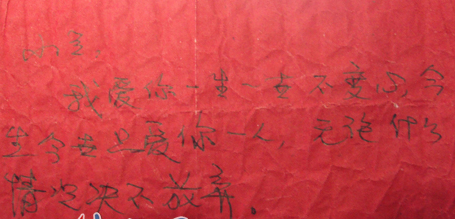 我爱你一生一世不变心今
生今世只爱你一人，无论什么
情况决不放弃。